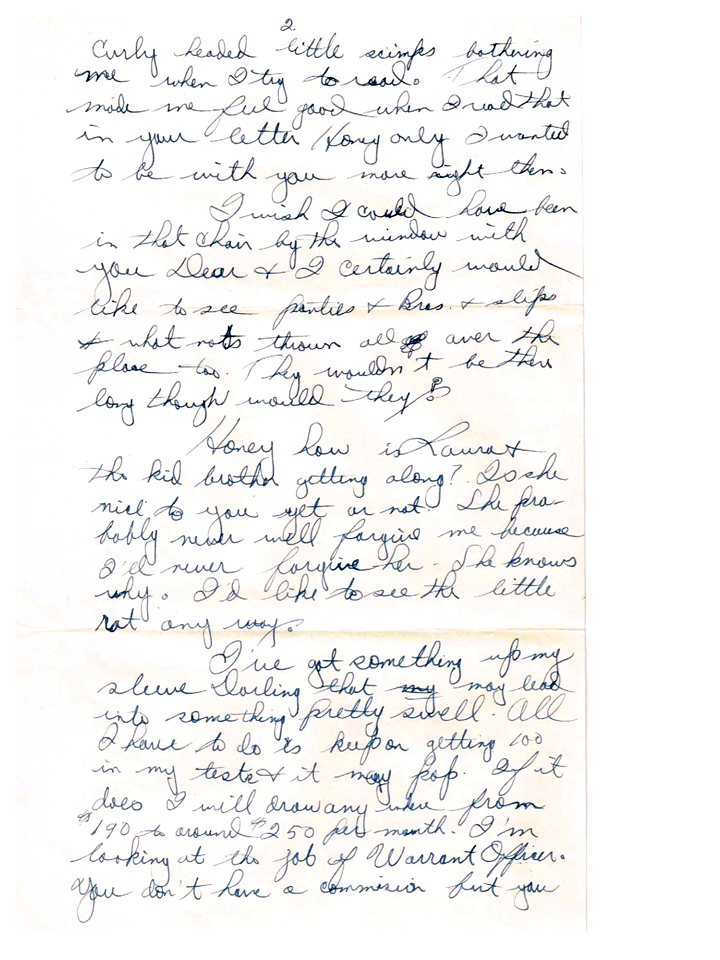 2.
Curly headed little scimps bothering
me when I try to read. That
made me feel good when I read that
in your letter Honey only I wanted
to be with you more right then.
I wish I could have been
in that chair by the window with
you Dear & I certainly would
like to see panties & Bras. & slips
& what nots thrown all over the
place too. They wouldn't be there
long though would they?
Honey how is Laura &
the kid brother getting along? Is she
nice to you yet or not? She pro-
bably never will forgive me because
I'll never forgive her. She knows
why. I'd like to see the little
rat any way.
I've got something up my
sleeve Darling that my may lead
into something pretty swell. All
I have to do is keep on getting 100
in my tests & it may pop. If it
does I will draw any where from
$190 to around $250 per month. I'm
looking at the job of Warrant Officer.
You don't have a commision but you